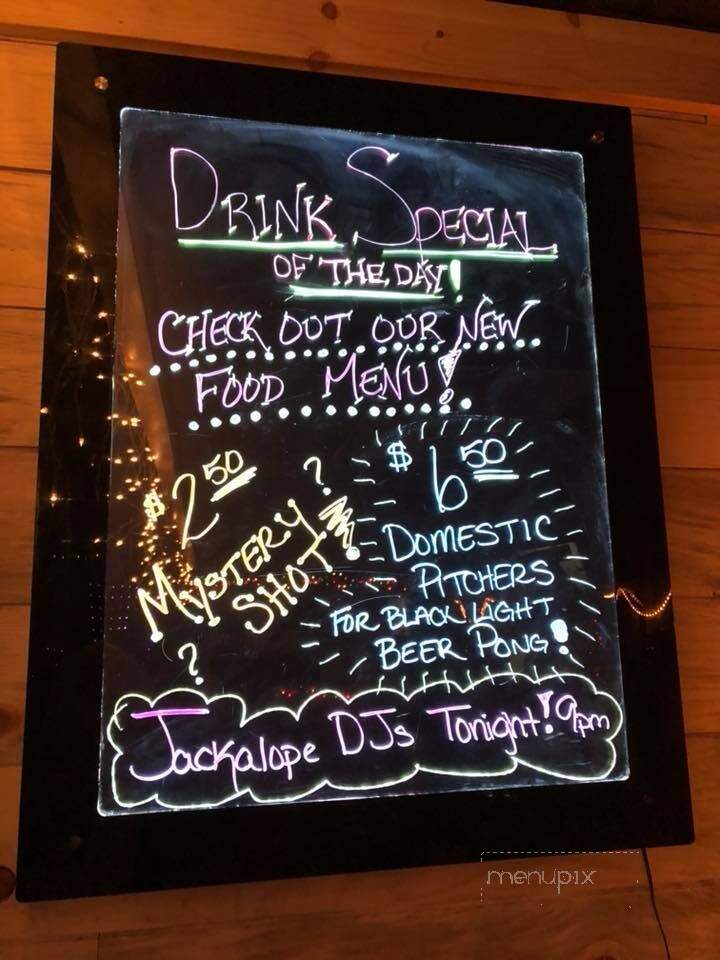 DRINK SPECIAL
OF THE DAY!
CHECK OUT OUR NEW
FOOD MENU!
$2.50
MYSTERY
SHOT!
?
?
$6.50
DOMESTIC
PITCHERS
FOR BLACK LIGHT
BEER PONG!
Jackalope DJs Tonight! 9pm
menupix